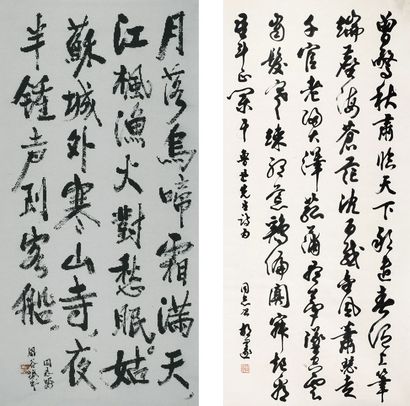 月落烏啼霜滿天
江楓漁火對愁眠姑
蘇城外寒山寺夜
半鍾声到客船
曾驚秋肅臨天下敢遣春溫上筆
端塵海蒼茫沈百感金風蕭瑟走
千官老歸大澤菰蒲盡夢墜空雲
齒髮寒竦聽荒雞偏闃寂起看
星斗正闌干 魯迅先生詩句